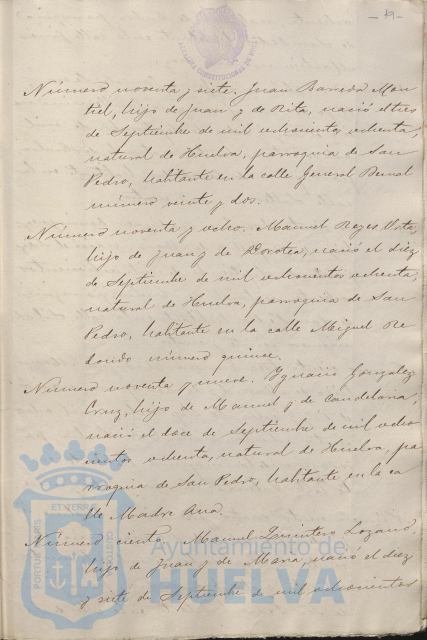 - 19 -
ALCALDIA CONSTITUCIONAL DE HUELVA
Número noventa y siete. Juan Barreda Mon
tiel, hijo de Juan y de Rita, nació el tres
de Septiembre de mil ochocientos ochenta,
natural de Huelva, parroquia de San
Pedro, habitante en la calle General Bernal
número veinte y dos.
Número noventa y ocho. Manuel Reyes Orta,
hijo de Juan y de Dorotea, nació el diez
de Septiembre de mil ochocientos ochenta,
natural de Huelva, parroquia de San
Pedro, habitante en la calle Miguel Re
dondo número quince.
Número noventa y nueve. Ygnacio Gonzalez
Cruz, hijo de Manuel y de Candelaria,
nació el doce de Septiembre de mil ocho
cientos ochenta, natural de Huelva, pa
rroquia de San Pedro, habitante en la ca
lle Madre Ana.
Número ciento. Manuel Quintero Lozano,
hijo de Juan y de Maria, nació el diez
y siete de Septiembre de mil ochocientos
PORTUS MARIS ET TERRAE CUSTODIA
Ayuntamiento de
HUELVA